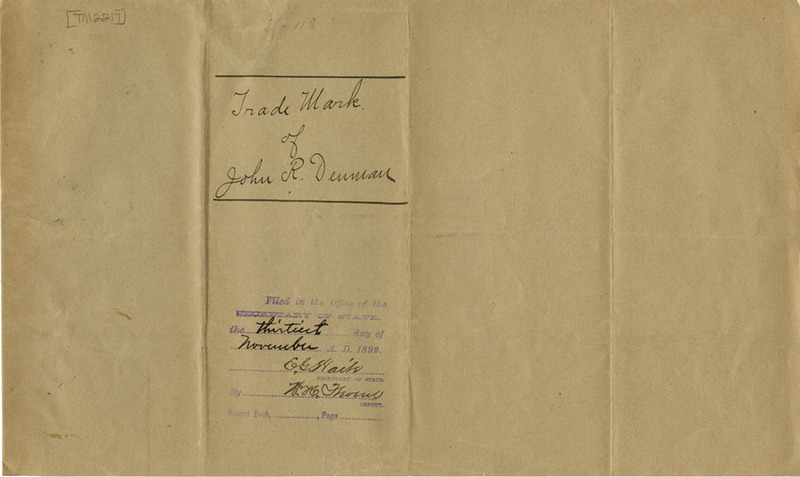 [TM2217]
Trade Mark.
of
John R. Denman
Filed in the Office of the
SECRETARY OF STATE,
the thirtieth day of
November A. D. 1892.
E.G. Waite
SECRETARY OF STATE.
By W.H.
DEPUTY.
Record Book, , Page